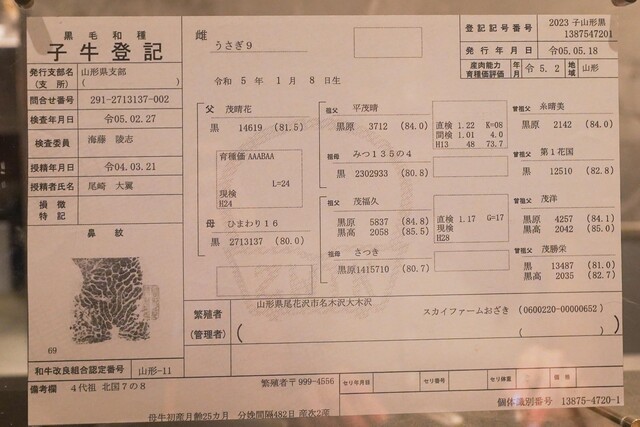 黒毛和種
子牛登記
雌
うさぎ9
登記記号番号 2023 子山形黒
1387547201
発行年月日 令05.05.18
産肉能力
育種価評価
年
月
令5.2
地
域
山形
発行支部名
(支所)
山形県支部
( )
問合せ番号 291-2713137-002
検査年月日 令05.02.27
検査委員 海藤 陵志
授精年月日 令04.03.21
授精者氏名 尾崎 大翼
損徴
特記
鼻紋
69
令和 5年 1月 8日生
父 茂晴花
黒 14619 (81.5)
育種価 AAABAA
L=24
現検
H24
母 ひまわり16
黒 2713137 (80.0)
祖父 平茂晴
黒原 3712 (84.0)
直検 1.22 K=08
間検 1.01 4.0
H13 48 73.7
祖母 みつ135の4
黒 2302933 (80.8)
祖父 茂福久
黒原 5837 (84.8)
黒高 2058 (85.5)
直検 1.17 G=17
現検
H28
祖母 さつき
黒原1415710 (80.7)
曽祖父 糸晴美
黒原 2142 (84.0)
曽祖父 第1花国
黒 12510 (82.8)
曽祖父 茂洋
黒原 4257 (84.1)
黒高 2042 (85.0)
曽祖父 茂勝栄
黒 13487 (81.0)
黒高 2035 (82.7)
繁殖者
(管理者)
山形県尾花沢市名木沢大木沢
スカイファームおざき (0600220-00000652)
( )
和牛改良組合認定番号 山形-11
備考欄 4代祖 北国7の8
繁殖者〒999-4556
セリ年月日
セリ番号
セリ体重
価格
個体識別番号 13875-4720-1
母牛初産月齢25カ月 分娩間隔482日 産次2産